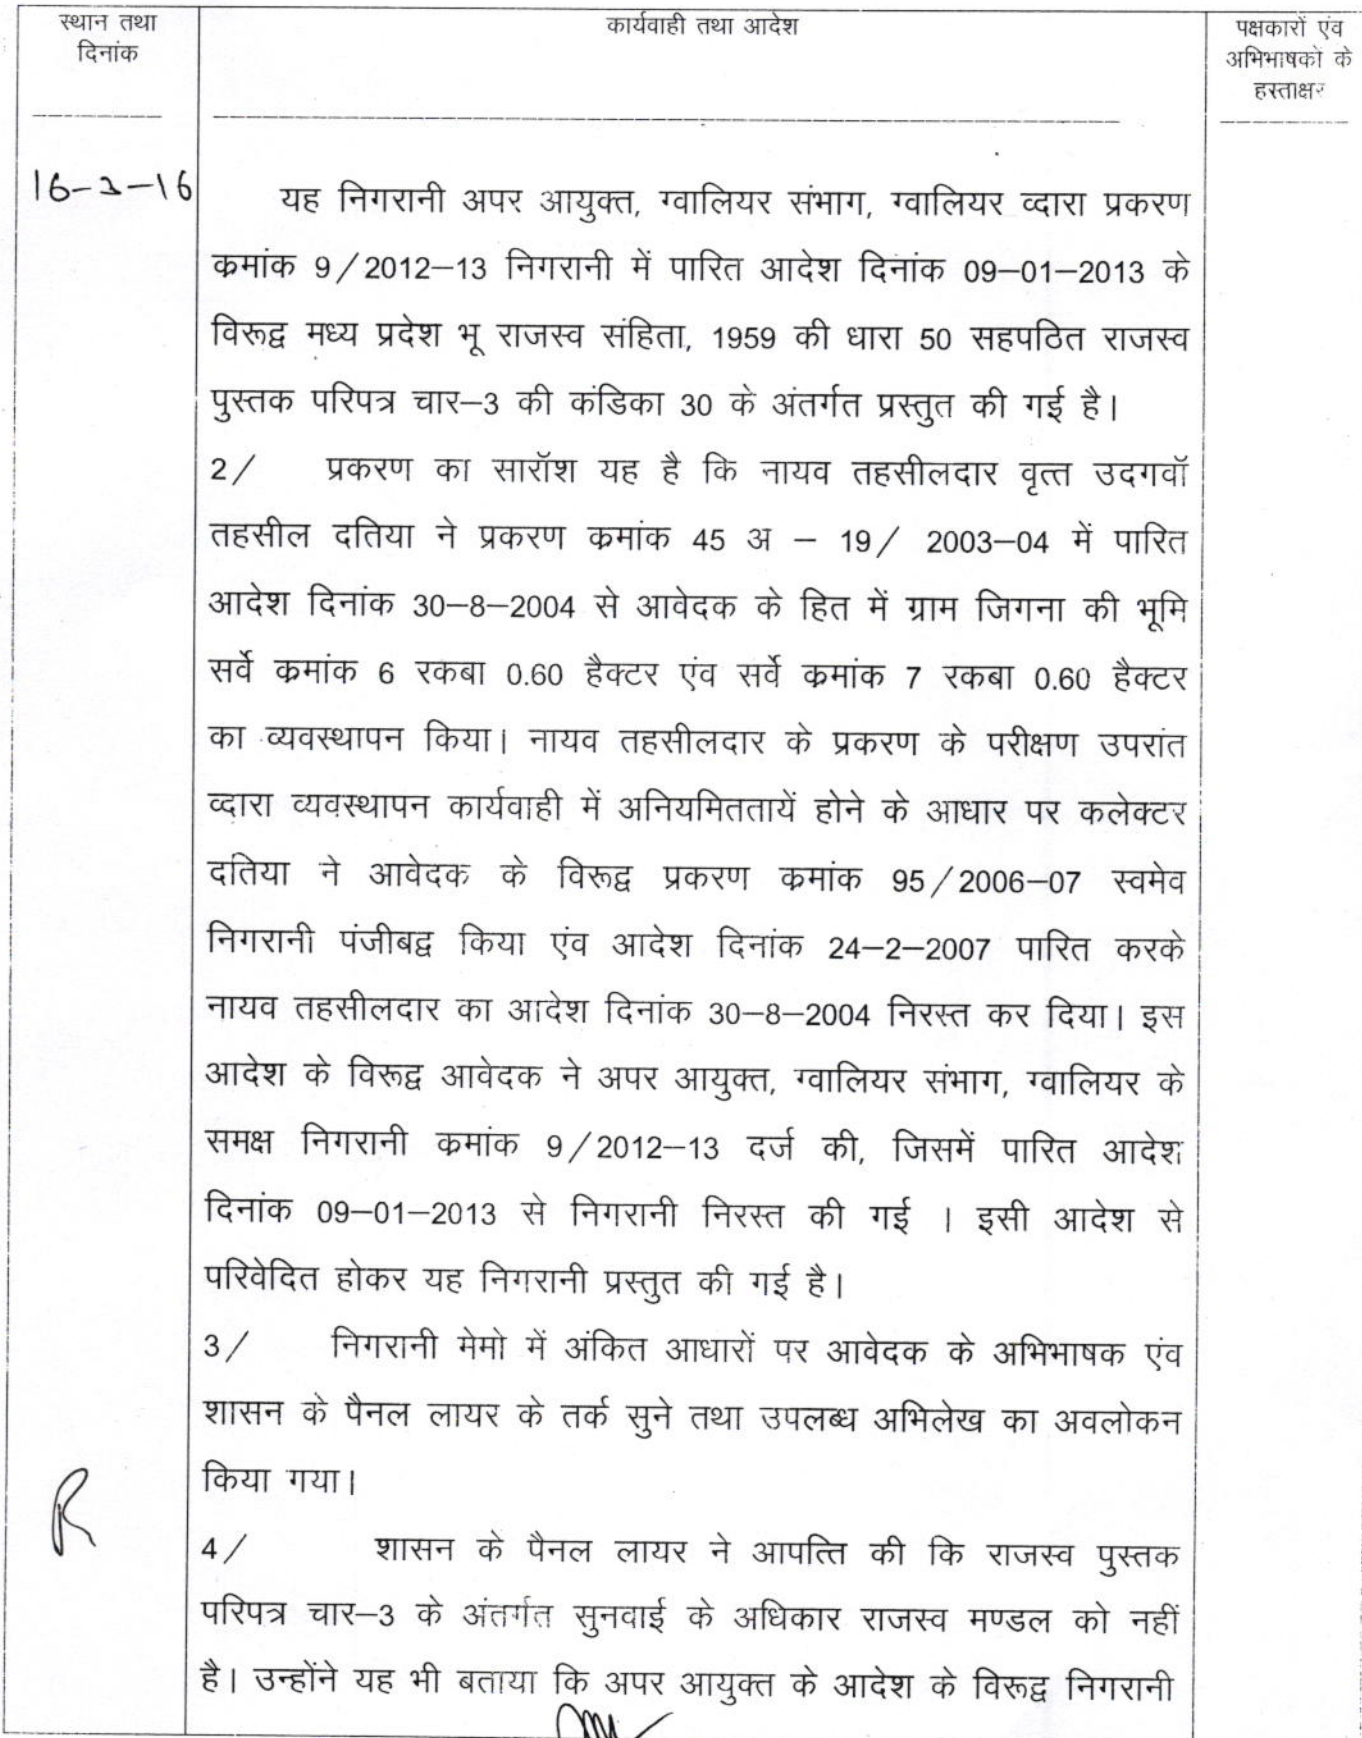 स्थान तथा
दिनांक
कार्यवाही तथा आदेश
पक्षकारों एंव
अभिभाषकों के
हस्ताक्षर
16-3-16
यह निगरानी अपर आयुक्त, ग्वालियर संभाग, ग्वालियर व्दारा प्रकरण
कमांक 9/2012–13 निगरानी में पारित आदेश दिनांक 09–01–2013 के
विरूद्व मध्य प्रदेश भू राजस्व संहिता, 1959 की धारा 50 सहपठित राजस्व
पुस्तक परिपत्र चार–3 की कंडिका 30 के अंतर्गत प्रस्तुत की गई है।
2/ प्रकरण का सारॉश यह है कि नायव तहसीलदार वृत्त उदगवॉ
तहसील दतिया ने प्रकरण कमांक 45 अ – 19/ 2003–04 में पारित
आदेश दिनांक 30–8–2004 से आवेदक के हित में ग्राम जिगना की भूमि
सर्वे कमांक 6 रकबा 0.60 हैक्टर एंव सर्वे कमांक 7 रकबा 0.60 हैक्टर
का व्यवस्थापन किया। नायव तहसीलदार के प्रकरण के परीक्षण उपरांत
व्दारा व्यवस्थापन कार्यवाही में अनियमिततायें होने के आधार पर कलेक्टर
दतिया ने आवेदक के विरूद्व प्रकरण कमांक 95/2006–07 स्वमेव
निगरानी पंजीबद्व किया एंव आदेश दिनांक 24–2–2007 पारित करके
नायव तहसीलदार का आदेश दिनांक 30–8–2004 निरस्त कर दिया। इस
आदेश के विरूद्व आवेदक ने अपर आयुक्त, ग्वालियर संभाग, ग्वालियर के
समक्ष निगरानी कमांक 9/2012–13 दर्ज की, जिसमें पारित आदेश
दिनांक 09–01–2013 से निगरानी निरस्त की गई । इसी आदेश से
परिवेदित होकर यह निगरानी प्रस्तुत की गई है।
3/ निगरानी मेमो में अंकित आधारों पर आवेदक के अभिभाषक एंव
शासन के पैनल लायर के तर्क सुने तथा उपलब्ध अभिलेख का अवलोकन
किया गया।
4/ शासन के पैनल लायर ने आपत्ति की कि राजस्व पुस्तक
परिपत्र चार–3 के अंतर्गत सुनवाई के अधिकार राजस्व मण्डल को नहीं
है। उन्होंने यह भी बताया कि अपर आयुक्त के आदेश के विरूद्व निगरानी